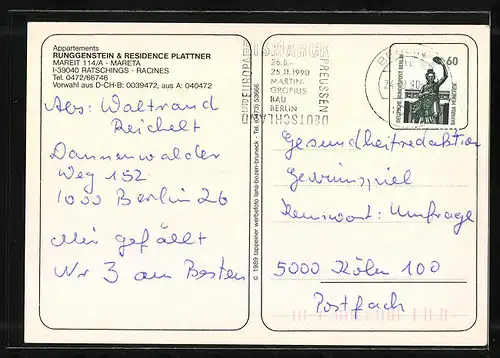 Appartements
RUNGGENSTEIN & RESIDENCE PLATTNER
MAREIT 114/A - MARETA
I-39040 RATSCHINGS - RACINES
Tel. 0472/66746
Vorwahl aus D-CH-B: 0039472, aus A: 040472
Abs: Waltraud
Reichelt
Dannenwalder
Weg 152
1000 Berlin 26
Mir gefällt
Nr 3 am Besten
© 1989 tappeiner werbefoto lana-bozen-bruneck - Tel. (0473) 53666
BISMARCK
PREUSSEN
DEUTSCHLAND
UND EUROPA
26.8.-
25.11.1990
MARTIN-
GROPIUS
BAU
BERLIN
BERLIN
60
DEUTSCHE BUNDESPOST BERLIN
BAVARIA MÜNCHEN
Gesundheitsredaktion
Gewinnspiel
Kennwort: Umfrage
5000 Köln 100
Postfach